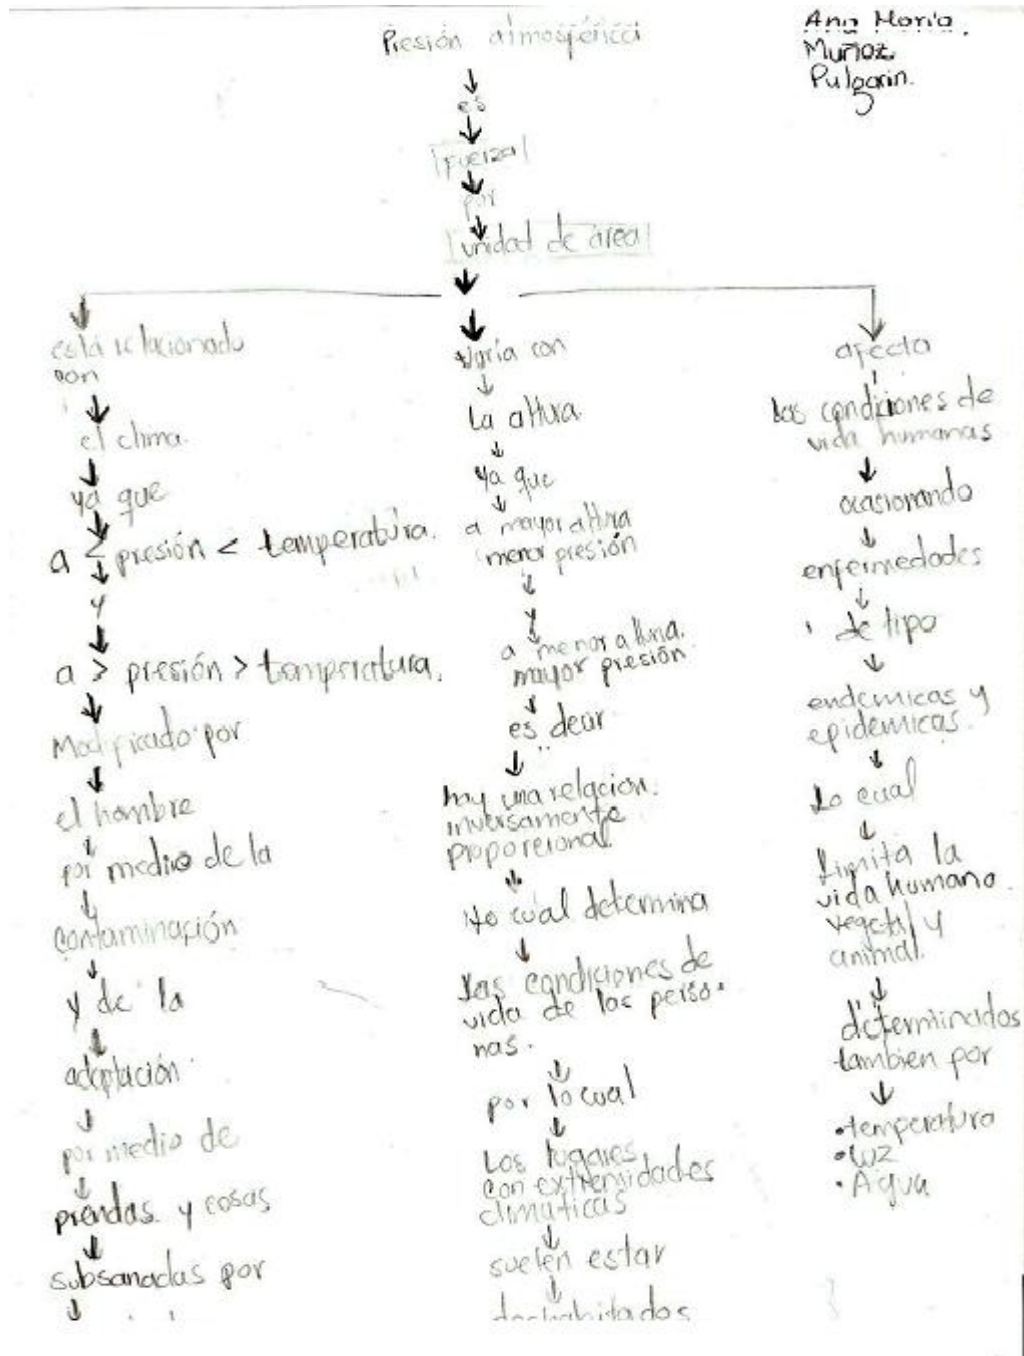 Presión atmosférica
Ana María
Muñoz
Pulgarin.
es
fuerza
por
unidad de área
está relacionado
con
el clima.
ya que
a < presión < temperatura.
y
a > presión > temperatura.
Modificado por
el hombre
por medio de la
contaminación
y de la
adaptación.
por medio de
prendas y cosas
subsanadas por
varía con
La altura.
ya que
a mayor altura
menor presión
y
a menor altura.
mayor presión.
es decir
hay una relación.
inversamente
proporcional.
lo cual determina
las condiciones de
vida de las perso-
nas.
por lo cual
Los lugares
con extremidades
climáticas
suelen estar
deshabitados
afecta
las condiciones de
vida humanas
ocasionando
enfermedades
de tipo
endemicas y
epidemicas.
Lo cual
limita la
vida humana.
vegetal y
animal.
determinados
tambien por
•temperatura
•luz
•Agua